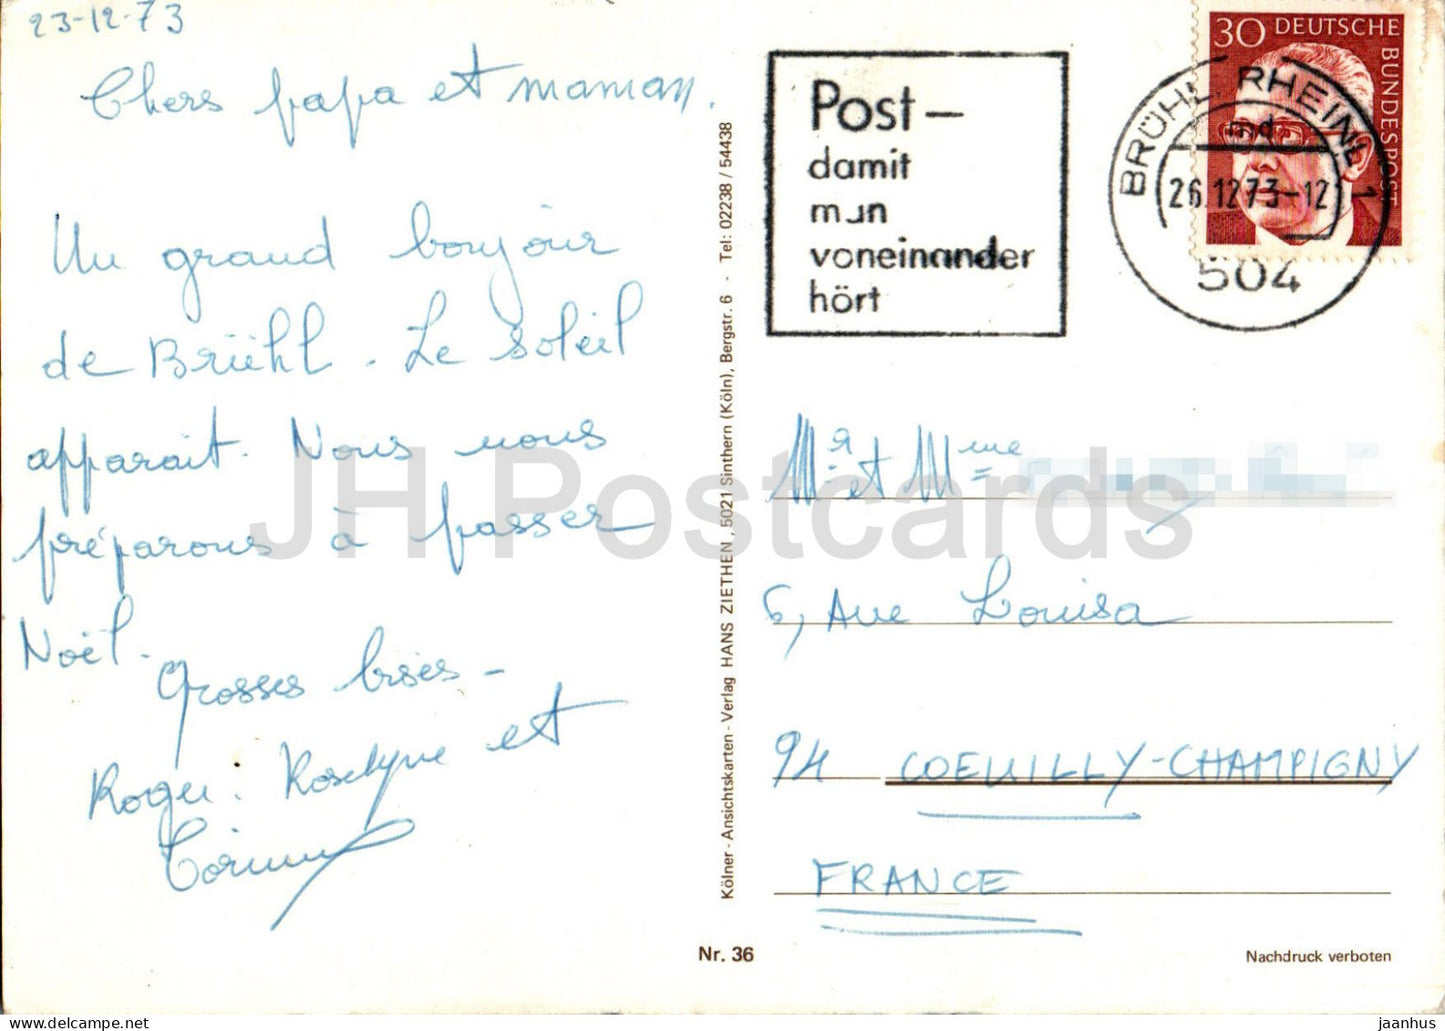 23-12-73
Chers papa et maman.
Un grand bonjour
de Brühl. Le soleil
apparait. Nous nous
préparons à passer
Noël.
Grosses bises -
Roger. Roselyne et
Corinne
Kölner - Ansichtskarten - Verlag HANS ZIETHEN, 5021 Sinthern (Köln), Bergstr. 6 · Tel: 02238 / 54438
Nr. 36
Post –
damit
man
voneinander
hört
30 DEUTSCHE
BUNDESPOST
BRÜHL RHEINL 1
md
26.12.73-12
504
Mr et Mme
6, Ave Louisa
94 COEUILLY-CHAMPIGNY
FRANCE
Nachdruck verboten
JH Postcards
www.jhpostcards.com
jaanhus